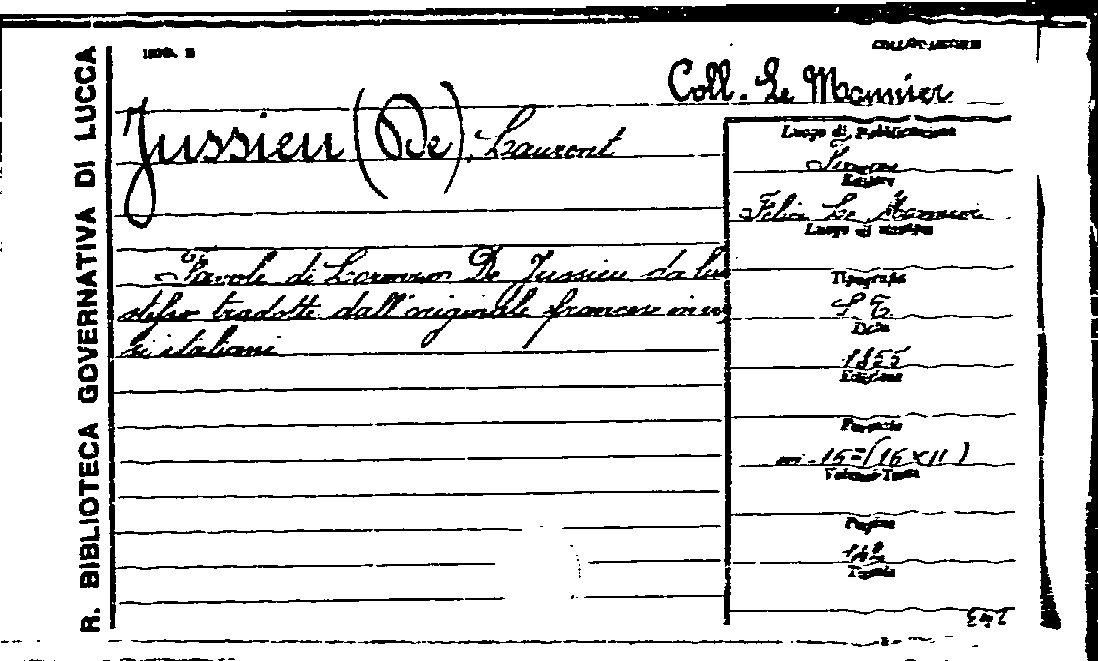 R. BIBLIOTECA GOVERNATIVA DI LUCCA
MOD. B
COLLOCAZIONE
Coll. Le Monnier
Jussieu (De) Laurent
Favole di Lorenzo De Jussieu da lui
stesso tradotte dall'originale francese in ver
si italiani
Luogo di Pubblicazione
Firenze
Editore
Felice Le Monnier
Luogo di stampa
Tipografia
Data
1855
Edizione
Formato
in-16=(16x11)
Volume-Tomo
Pagine
142
Tavole